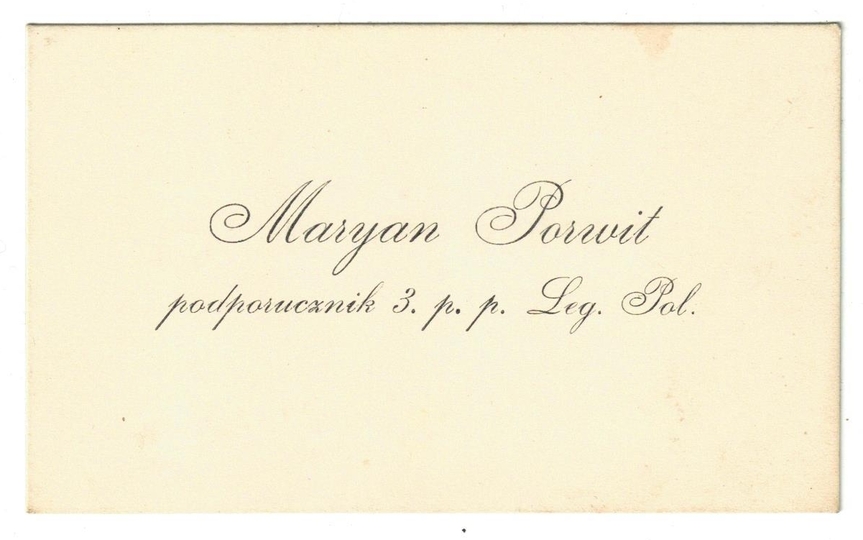 Maryan Porwit
podporucznik 3. p. p. Leg. Pol.